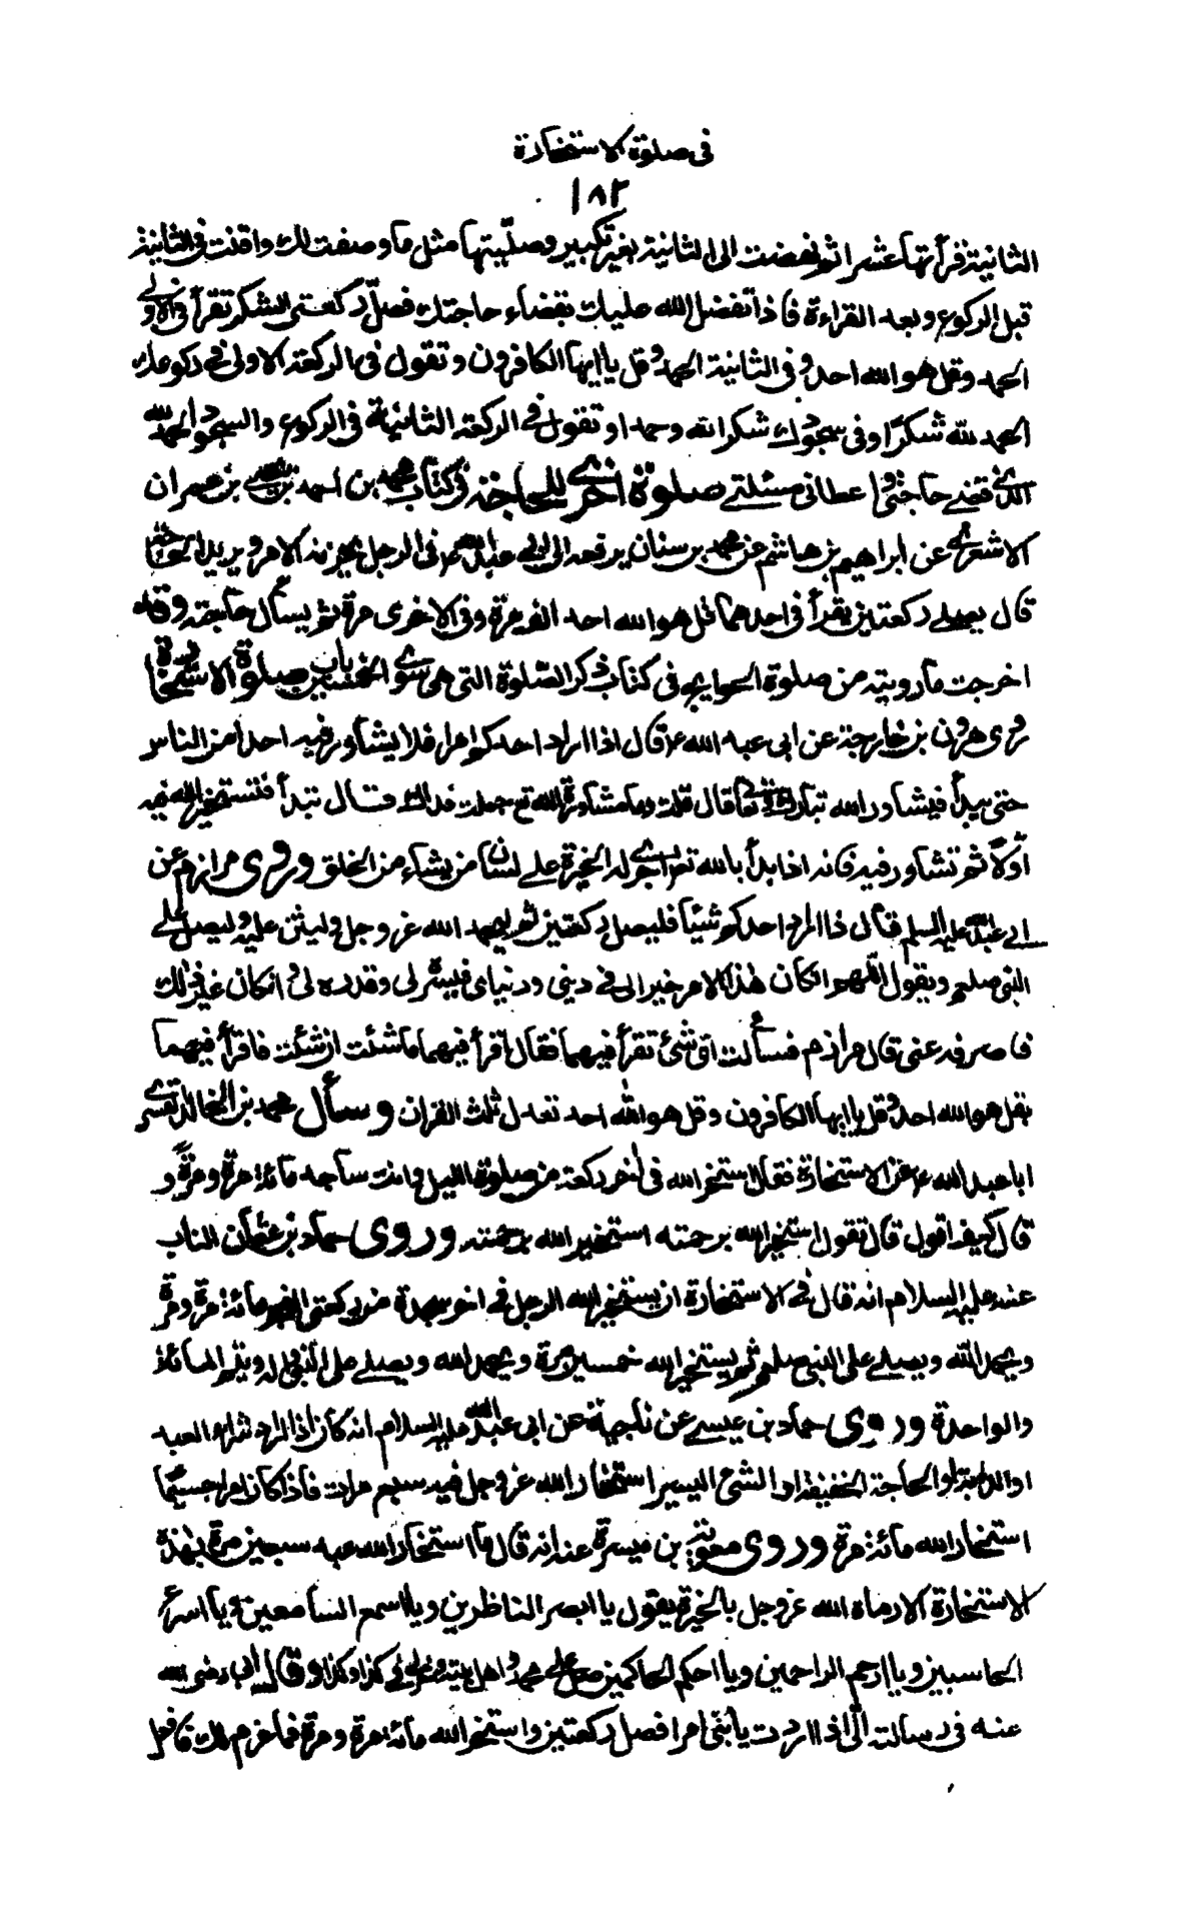 فى صلوة الاستخارة
١٨٢
الثانية فرأتها عشرا ثم نهضت الى الثانية بغير تكبير وصليتها مثل ما وصفت لك واقنت فى الثانية
قبل الركوع وبعد القراءة فاذا تفضل الله عليك بقضاء حاجتك فصل ركعتى الشكر تقرأ فى الاولى
الحمد وقل هو الله احد وفى الثانية الحمد وقل يا ايها الكافرون وتقول فى الركعة الاولى فى ركوعك
الحمد لله شكرا وفى سجودك شكرا لله وحمدا وتقول فى الركعة الثانية فى الركوع والسجود الحمد لله
الذى قضى حاجتى واعطانى مسئلتى صلوة اخرى للحاجة فى كتاب محمد بن احمد بن يحيى بن عمران
الاشعرى عن ابراهيم بن هاشم عن محمد بن سنان يرفعه الى ابى عبد الله ع فى الرجل يحزنه الامر ويريد الحاجة
قال يصلى ركعتين يقرأ فى احدهما قل هو الله احد الف مرة وفى الاخرى مرة ثم يسأل حاجته وقد
اخرجت ما رويته من صلوة الحوايج فى كتاب ذكر الصلوة التى هى سوى الخمسين باب صلوة الاستخارة
روى هرون بن خارجة عن ابى عبد الله ع قال اذا اراد احدكم امرا فلا يشاور فيه احدا من الناس
حتى يبدأ فيشاور الله تبارك وتعا قال قلت وما مشاورة الله تع جعلت فداك فقال تبدأ فتستخير الله فيه
اولا ثم تشاور فيه فانه اذا بدأ بالله تع اجرى له الخيرة على لسان من يشاء من الخلق وروى مرازم عن
ابى عبد الله عليه السلم قال اذا اراد احدكم شيئا فليصل ركعتين ثم ليحمد الله عز وجل وليثن عليه وليصل على
النبى صلعم ويقول اللهم ان كان هذا الامر خيرا لى فى دينى ودنياى فيسره لى وقدره لى وان كان غير ذلك
فاصرفه عنى قال مرازم فسألت اى شئ تقرأ فيهما فقال اقرأ فيهما ما شئت ان شئت فاقرأ فيهما
بقل هو الله احد وقل يا ايها الكافرون وقل هو الله احد تعدل ثلث القران وسأل محمد بن الخالد القسرى
ابا عبد الله ع عن الاستخارة فقال استخر الله فى اخر ركعة من صلوة الليل وانت ساجد مائة مرة ومرة و
قال كيف اقول قال تقول استخير الله برحمته استخير الله برحمته وروى حماد بن عثمان الناب
عنه عليه السلام انه قال فى الاستخارة ان يستخير الله الرجل فى اخر سجدة من ركعتى الفجر مائة مرة ومرة
ويحمد الله ويصلى على النبى صلعم ثم يستخير الله خمسين مرة ويحمد الله ويصلى على النبى واله ويتم المائة
والواحدة وروى حماد بن عيسى عن ناجية عن ابى عبد الله عليه السلام انه كان اذا اراد شراء العبد
او الدابة او الحاجة الخفيفة او الشئ اليسير استخار الله عز وجل فيه سبع مرات فاذا كان امرا جسيما
استخار الله مائة مرة وروى معوية بن ميسرة عنه انه قال ما استخار الله عبد سبعين مرة بهذه
الاستخارة الا رماه الله عز وجل بالخيرة يقول يا ابصر الناظرين ويا اسمع السامعين ويا اسرع
الحاسبين ويا ارحم الراحمين ويا احكم الحاكمين صل على محمد واهل بيته وخر لى فى كذا وكذا وقال ابى رضى الله
عنه فى رسالته الى اذا اردت يا بنى امرا فصل ركعتين واستخر الله مائة مرة ومرة فما عزم لك فافعل